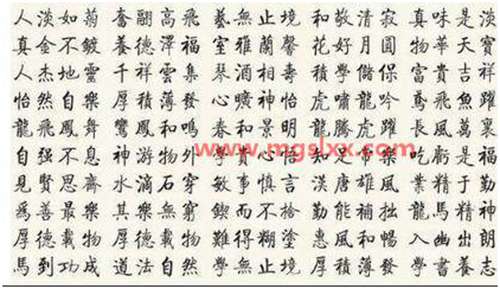 人淡如菊 奮翮高飛 藝無止境 和敬清寂 真味是淡
真金不鍍 養德澤福 室雅蘭馨 花好月圓 物華天寶
人杰地靈 千祥雲集 琴相壽 積學儲 富貴吉祥
怡然自樂 厚積薄發 心曠神怡 虎嘯龍吟 鳶飛魚躍
龍飛鳳舞 鸞鳳和鳴 春和景明 龍騰虎躍 長風萬裏
www.mgslxx.com
自强不息 神游物外 賞心 知樂 吃虧是福
見賢思齊 水滴石穿 敏事慎言 漢唐雄風 業精于勤
爲善最樂 其樂無窮 鍥而不捨 勤能補拙 龍馬精神
厚德載物 厚德載物 難得糊塗 惠風和暢 入幽出朗
馬到功成 道法自然 學無止境 厚積薄發 學書養志